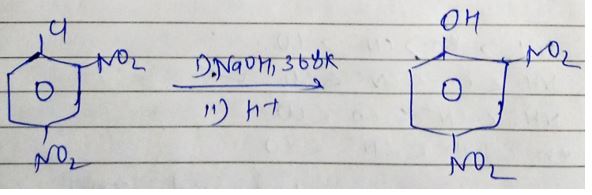 Cl
NO2
NO2
i) NaOH, 368K
ii) H+
OH
NO2
NO2